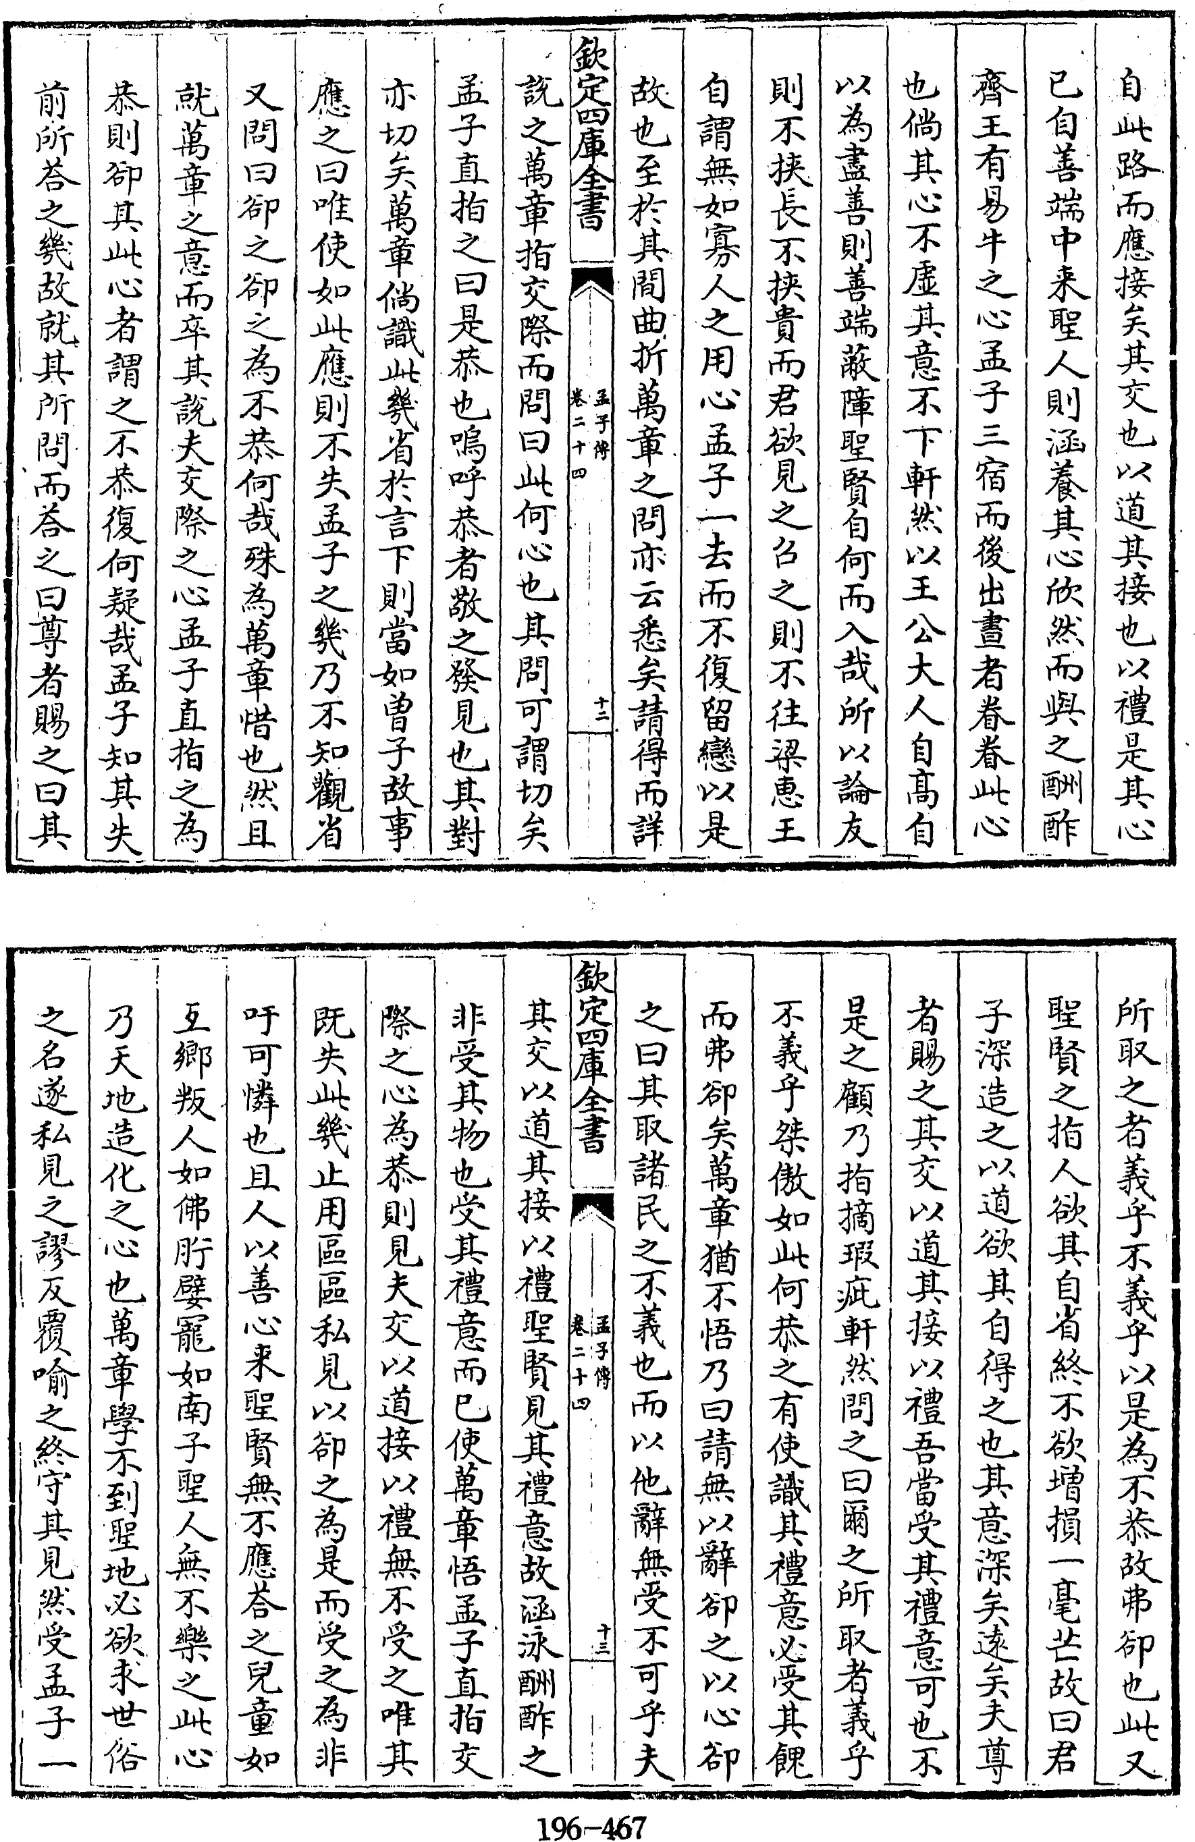 自此路而應接矣其交也以道其接也以禮是其心
已自善端中来聖人則涵養其心欣然而與之酬酢
齊王有易牛之心孟子三宿而後出晝者眷眷此心
也倘其心不虛其意不下軒然以王公大人自高自
以為盡善則善端蔽障聖賢自何而入哉所以論友
則不挾長不挾貴而君欲見之召之則不往梁惠王
自謂無如寡人之用心孟子一去而不復留戀以是
故也至於其間曲折萬章之問亦云悉矣請得而詳
欽定四庫全書
孟子傳
卷二十四
十二
說之萬章指交際而問曰此何心也其問可謂切矣
孟子直指之曰是恭也嗚呼恭者敬之發見也其對
亦切矣萬章倘識此幾省於言下則當如曾子故事
應之曰唯使如此應則不失孟子之幾乃不知觀省
又問曰卻之卻之為不恭何哉殊為萬章惜也然且
就萬章之意而卒其說夫交際之心孟子直指之為
恭則卻其此心者謂之不恭復何疑哉孟子知其失
前所荅之幾故就其所問而荅之曰尊者賜之曰其
所取之者義乎不義乎以是為不恭故弗卻也此又
聖賢之指人欲其自省終不欲增損一毫芒故曰君
子深造之以道欲其自得之也其意深矣遠矣夫尊
者賜之其交以道其接以禮吾當受其禮意可也不
是之顧乃指摘瑕疵軒然問之曰爾之所取者義乎
不義乎桀傲如此何恭之有使識其禮意必受其餽
而弗卻矣萬章猶不悟乃曰請無以辭卻之以心卻
之曰其取諸民之不義也而以他辭無受不可乎夫
欽定四庫全書
孟子傳
卷二十四
十三
其交以道其接以禮聖賢見其禮意故涵泳酬酢之
非受其物也受其禮意而已使萬章悟孟子直指交
際之心為恭則見夫交以道接以禮無不受之唯其
既失此幾止用區區私見以卻之為是而受之為非
吁可憐也且人以善心来聖賢無不應荅之兒童如
互鄉叛人如佛肸嬖寵如南子聖人無不樂之此心
乃天地造化之心也萬章學不到聖地必欲求世俗
之名遂私見之謬反覆喻之終守其見然受孟子一
196-467